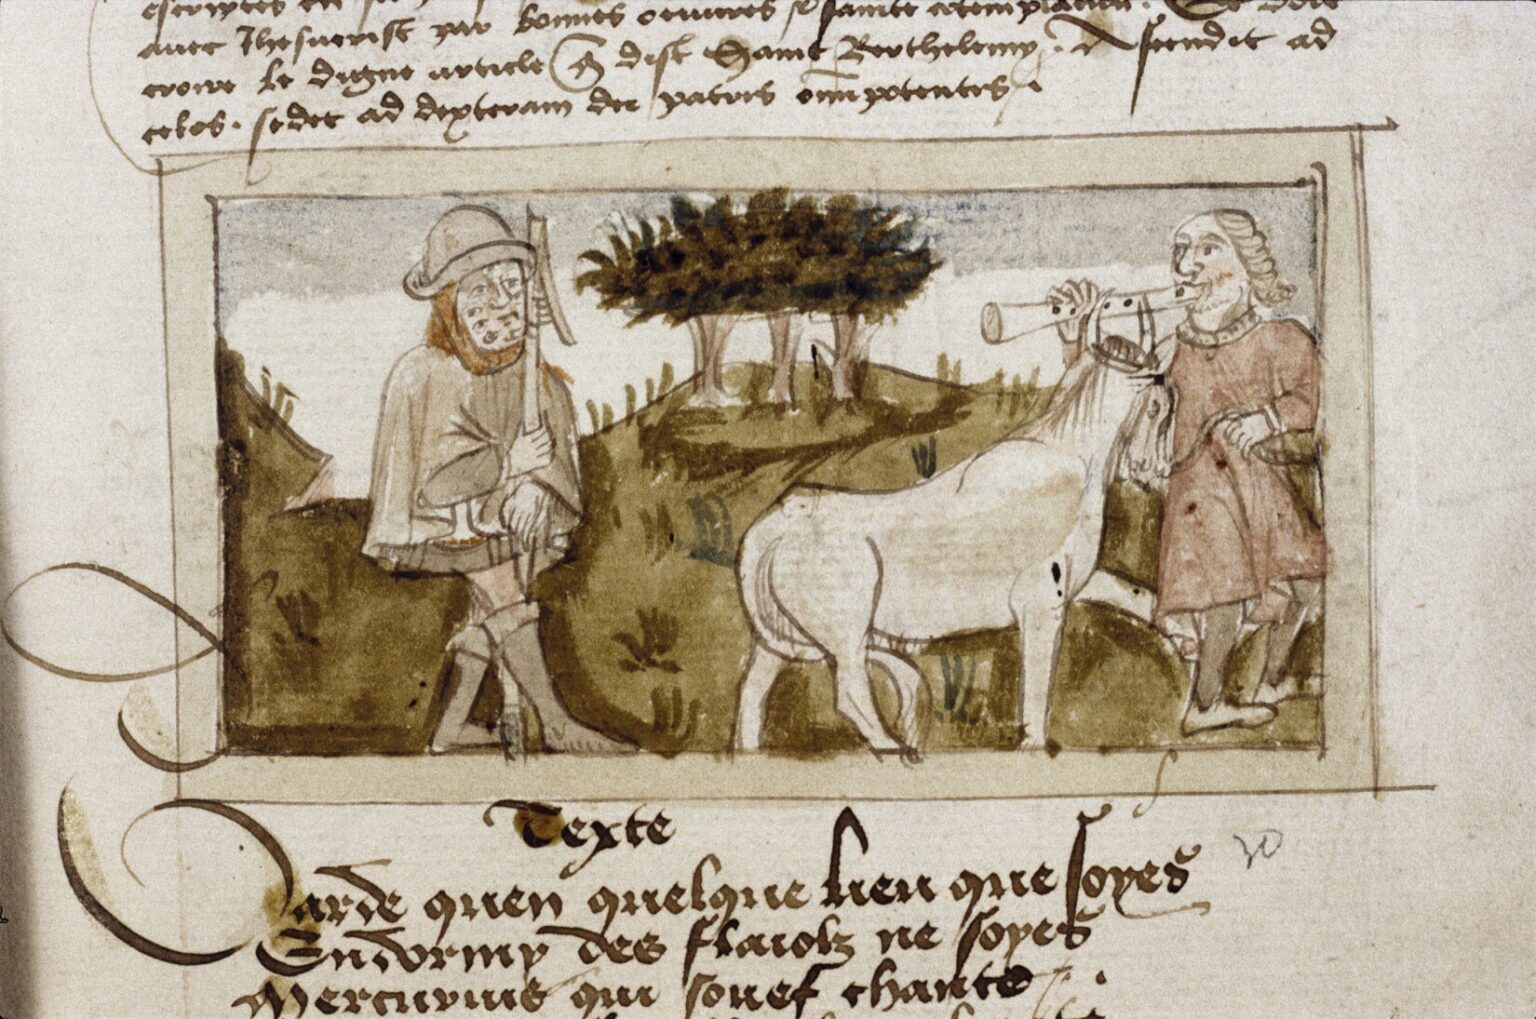 auec Jhesucrist par bonnes oeuures & sainte contemplacion. Et doit
croire le digne article que dist Saint Berthelemy. Ascendit ad
celos. sedet ad dexteram dei patris omnipotentis.
Texte
Garde quen quelque lieu que soyes
Endormy des flaiolz ne soyes
Mercurius qui souef chante
20